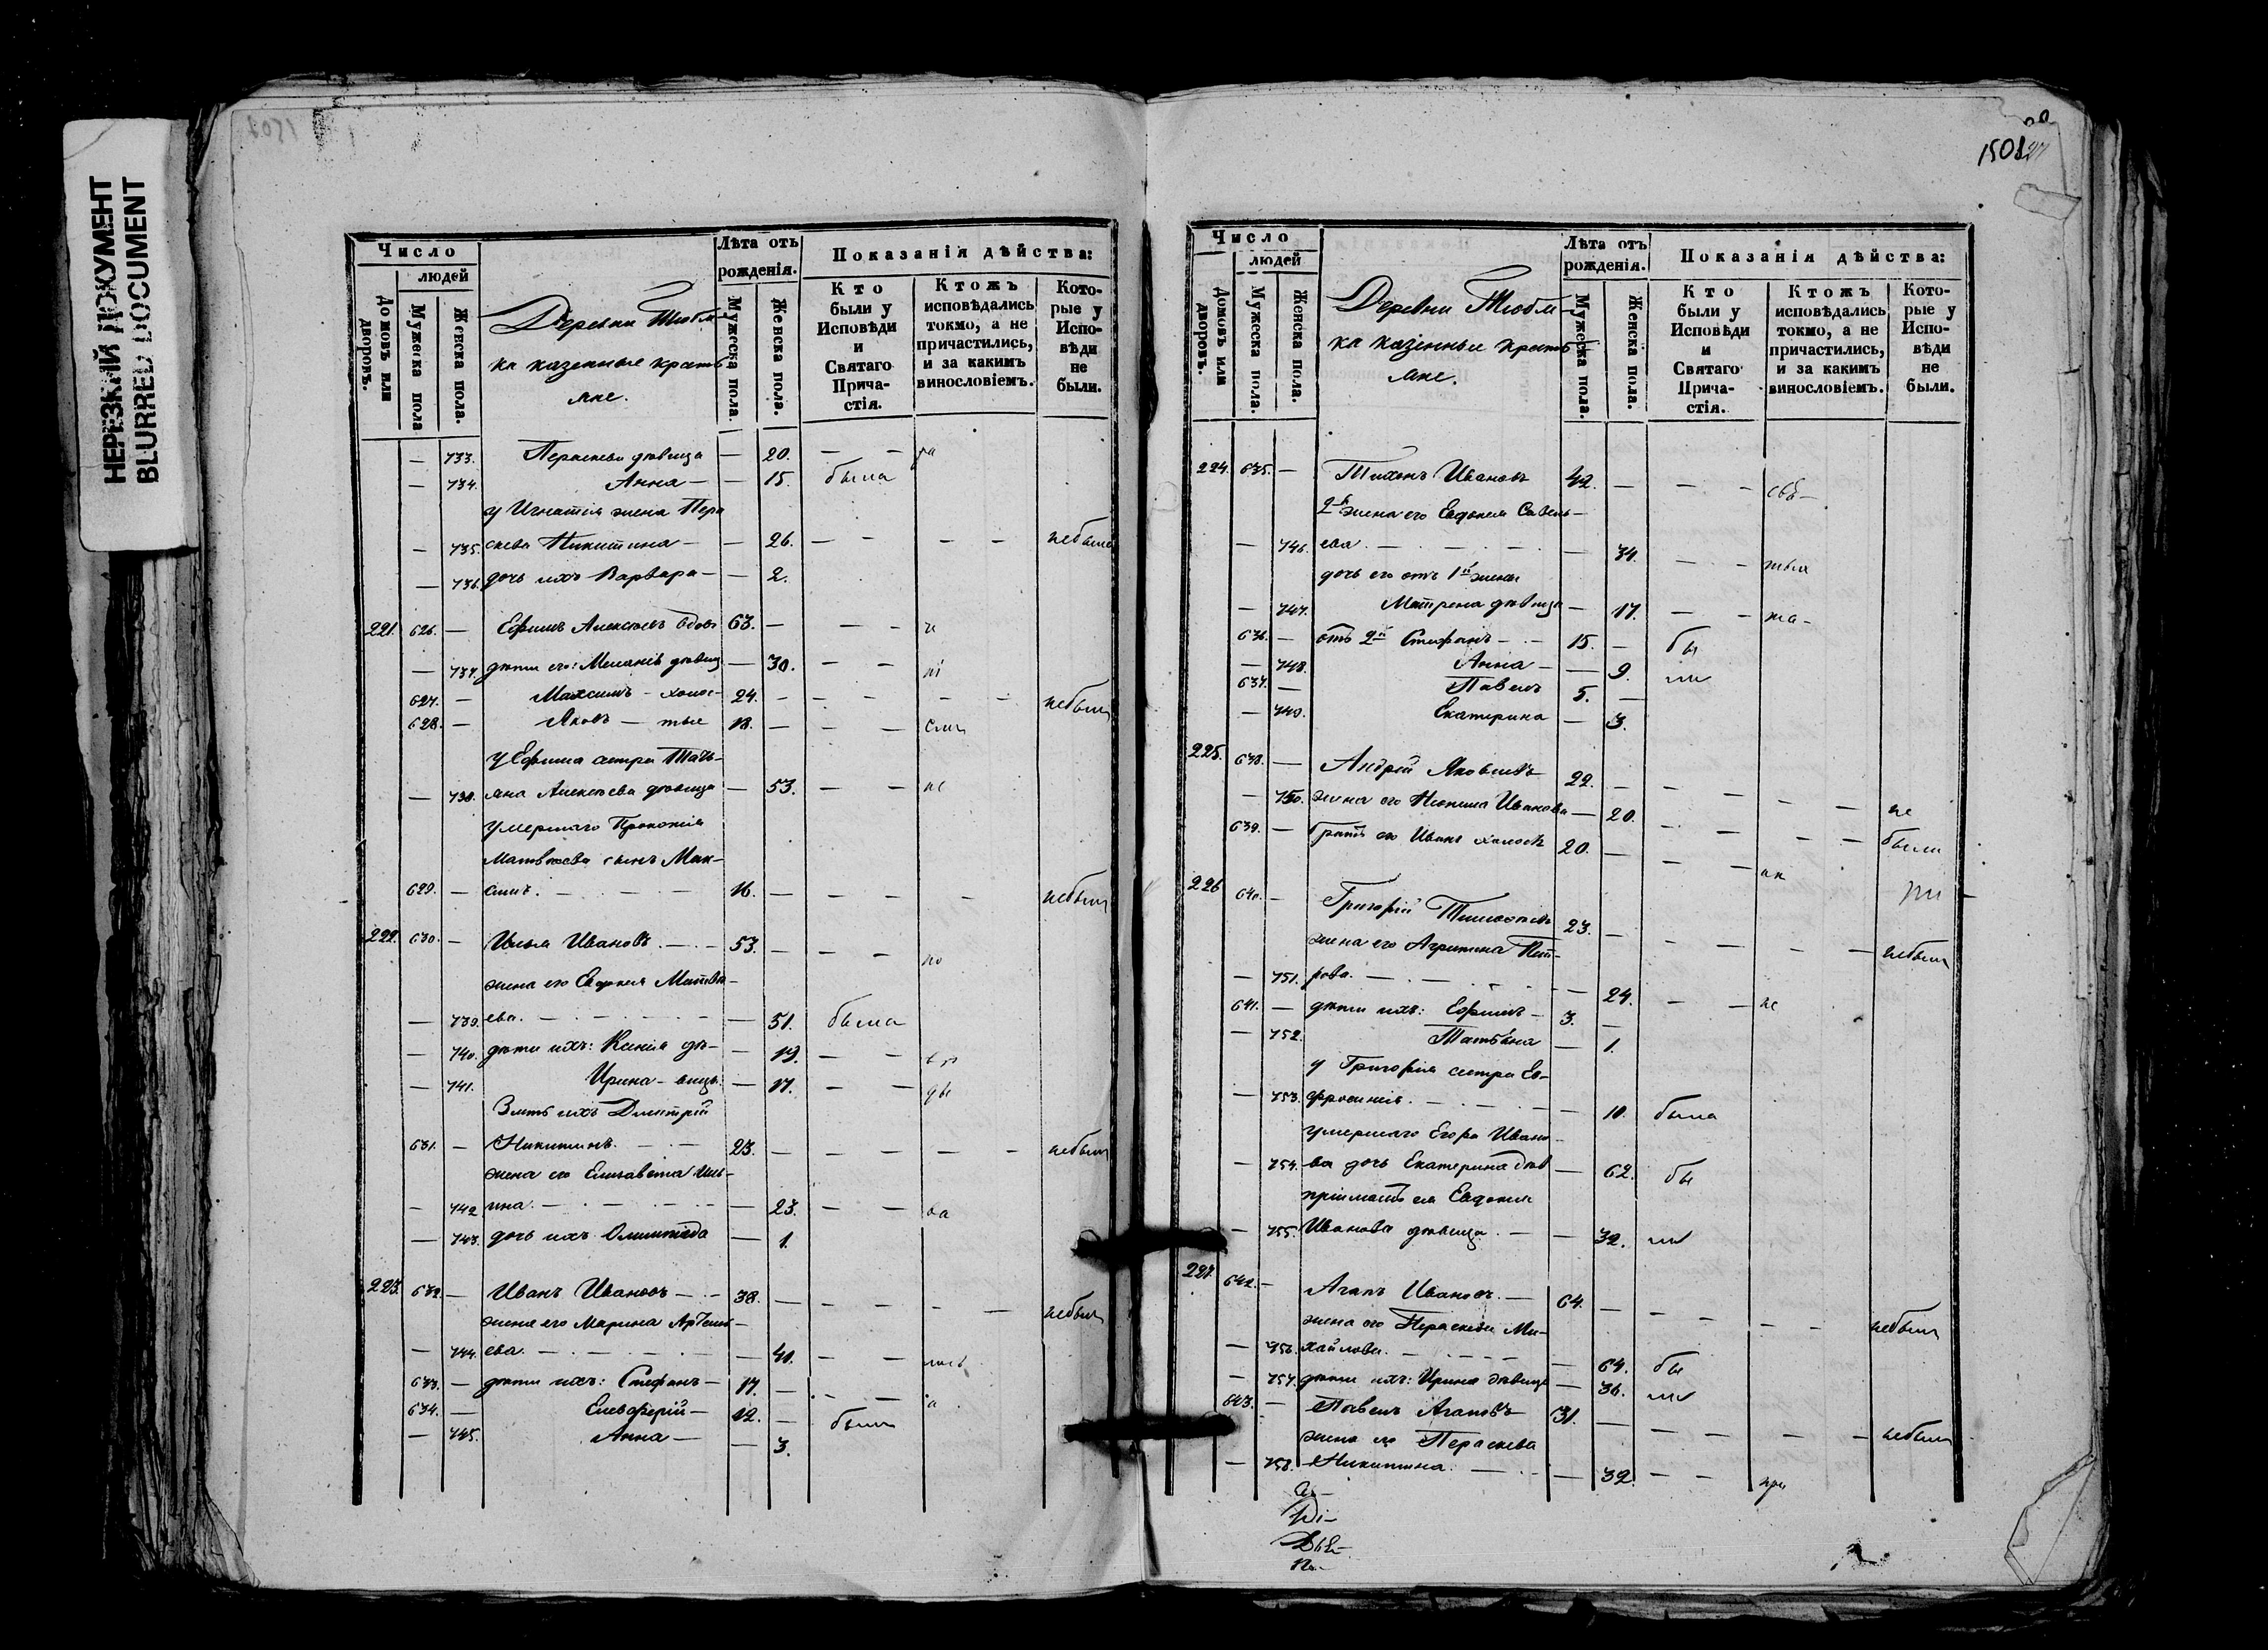 НЕРЕЗКИЙ ДОКУМЕНТ
BLURRED DOCUMENT
Число
людей
Домовъ или дворовъ.
Мужеска пола
Женска пола.
Деревни Тюбл-
ка казенные кресть
яне.
Лѣта отъ рожденія.
Мужеска пола.
Женска пола.
Показанія дѣйства:
Кто были у Исповѣди и Святаго Причастія.
Ктожъ исповѣдались токмо, а не причастились, и за какимъ винословіемъ.
Которые у Исповѣди не были.
— 733. Перасковья дѣвица — 20. — —
— 734. Анна — — 15. была
у Игнатія жена Пера
— 735. скева Никитина — — 26. — — — — небыла
— 736. дочь ихъ Варвара — — 2.
221. 626. — Ефимъ Алексѣевъ вдовъ 63. — — —
— 737. дѣти его: Меланія дѣвиц — 30. — —
627. — Максимъ — холос- 24. — — — — — небыли
628. — Яковъ — тые 18. — — —
у Ефима сестра Тать-
— 738. яна Алексѣева дѣвица — 53. — —
умершаго Прокопія
Матвѣева сынъ Мак-
629. — симъ. — — — 16. — — — — небыли
222. 630. — Илья Ивановъ. — — 53. — — —
жена его Евдокія Матвѣ-
— 739. ева. — — — — 51. была
— 740. дѣти ихъ: Ксенія дѣ- — 19. — —
— 741. Ирина — вицы. — 17. — —
Зять ихъ Димитрій
631. — Никитинъ. — — 23. — — — — — небыли
жена его Елисавета Иль-
— 742 ина. — — — — 23. — —
— 743. дочь ихъ Олимпіада — 1.
223. 632. — Иванъ Ивановъ — — 38. — — — — — небыли
жена его Марина Артемь-
— 744. ева. — — — — 40. — —
633. — дѣти ихъ: Стефанъ — 17. — — —
634. — Елевферій — 12. — были
— 745. Анна — — 3.
1501
Число
людей
Домовъ или дворовъ.
Мужеска пола.
Женска пола.
Деревни Тюбл-
ка казенные кресть
яне.
Лѣта отъ рожденія.
Мужеска пола.
Женска пола.
Показанія дѣйства:
Кто были у Исповѣди и Святаго Причастія.
Ктожъ исповѣдались токмо, а не причастились, и за какимъ винословіемъ.
Которые у Исповѣди не были.
224. 635. — Тихонъ Ивановъ 42. — — —
2я жена его Евдокія Савель-
— 746. ева. — — — — 34. — —
дочь его отъ 1й жены
— 747. Матрена дѣвица — 17. — —
636. — отъ 2й Стефанъ — 15. — бы
— 748. Анна — — 9. ли
637. — Павелъ 5. —
— 749. Екатерина — 3.
225. 638. — Андрей Яковлевъ 22. — — — — — не
— 750. жена его Неонила Иванова — 20. — — — — были
639. — братъ его Иванъ холостъ 20. — — —
226 640. — Григорій Тимоѳеевъ 23. — — — — — небыли
жена его Агрипина Пет-
— 751. рова. — — — — 24. — —
641. — дѣти ихъ: Ефимъ — 3. —
— 752. Татьяна — 1.
у Григорія сестра Ев-
— 753. фросинія. — — — — 10. была
умершаго Егора Ивано-
— 754. ва дочь Екатерина дѣв — 62. бы
пріиматъ ея Евдокія
— 755. Иванова дѣвица. — — 32. ли
227. 642. — Агапъ Ивановъ. — 64. — — — — — небыли
жена его Пераскева Ми-
— 756. хайлова. — — — — 64. бы
— 757. дѣти ихъ: Ирина дѣвица — 36. ли
643. — Павелъ Агаповъ 31. — — — — — небыли
жена его Пераскева
— 758. Никитина. — — — 32. — —